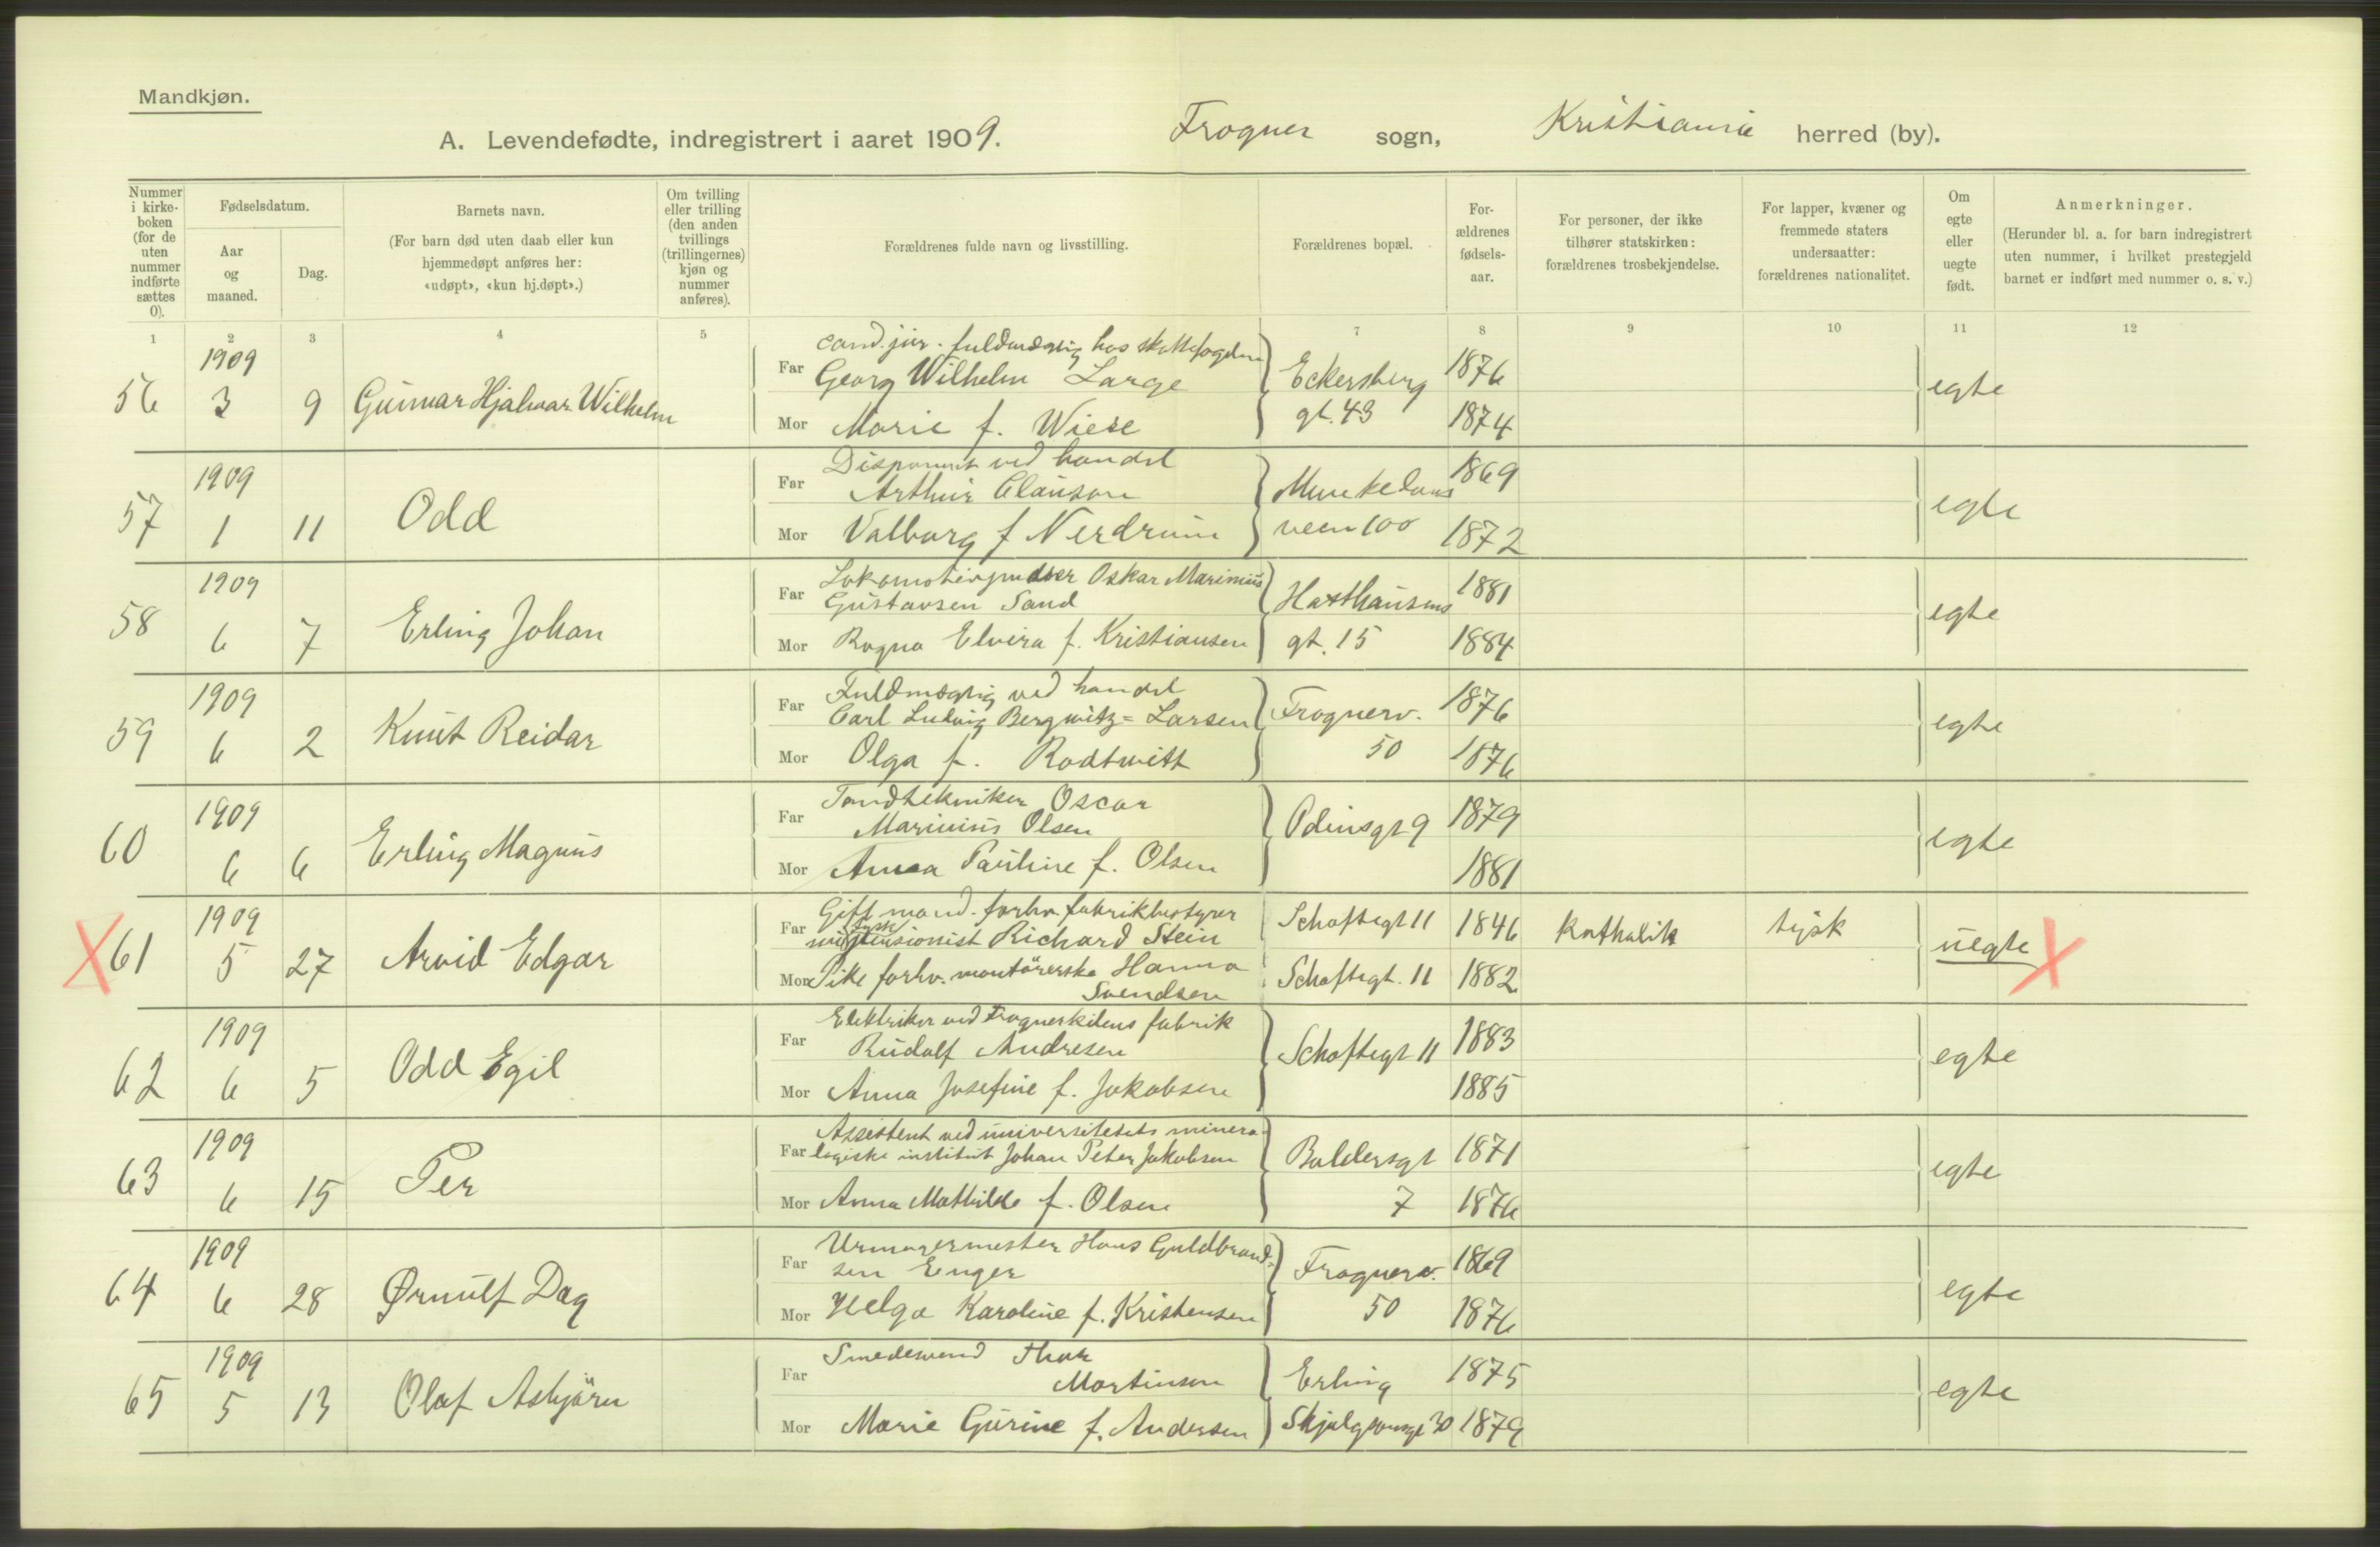 Mandkjøn.
A. Levendefødte, indregistrert i aaret 1909. Frogner sogn, Kristiania herred (by).
Nummer i kirke-boken (for de uten nummer indførte sættes 0).
Fødselsdatum.
Aar og maaned.
Dag.
Barnets navn.
(For barn død uten daab eller kun hjemmedøpt anføres her: «udøpt», «kun hj.døpt».)
Om tvilling eller trilling (den anden tvillings (trillingernes) kjøn og nummer anføres).
Forældrenes fulde navn og livsstilling.
Forældrenes bopæl.
For-ældrenes fødsels-aar.
For personer, der ikke tilhører statskirken: forældrenes trosbekjendelse.
For lapper, kvæner og fremmede staters undersaatter: forældrenes nationalitet.
Om egte eller uegte født.
Anmerkninger.
(Herunder bl. a. for barn indregistrert uten nummer, i hvilket prestegjeld barnet er indført med nummer o. s. v.)
1 2 3 4 5 7 8 9 10 11 12
56 1909 3 9 Gunnar Hjalmar Wilhelm
Far cand. jur. fuldmægtig hos skattefogden
Georg Wilhelm Lange Eckersberg 1876 egte
Mor Marie f. Wiese gt. 43 1874
57 1909 1 11 Odd
Far Disponent ved handel
Arthur Clauson Munkedams 1869 egte
Mor Valborg f Nerdrum veien 100 1872
58 1909 6 7 Erling Johan
Far Lokomotivpudser Oskar Marinius
Gustavsen Sand Haxthausens 1881 egte
Mor Ragna Elvira f. Kristiansen gt. 15 1884
59 1909 6 2 Knut Reidar
Far Fuldmægtig ved handel
Carl Ludvig Bergwitz=Larsen Frognerv. 1876 egte
Mor Olga f. Rodtwitt 50 1876
60 1909 6 6 Erling Magnus
Far Tandtekniker Oscar
Marinius Olsen Odinsgt 9 1879 egte
Mor Anna Pauline f. Olsen 1881
61 1909 5 27 Arvid Edgar
Far Gift mand. forhv. fabrikbestyrer
pensionist Richard Stein Schaftegt 11 1846 Katholik tysk uegte
Mor Pike forhv. montörerske Hanna
Svendsen Schaftegt. 11 1882
62 1909 6 5 Odd Egil
Far Elektriker ved Frognerkilens fabrik
Rudolf Andresen Schaftegt 11 1883 egte
Mor Anna Josefine f. Jakobsen 1885
63 1909 6 15 Per
Far Assistent ved universitetets minera-
logiske institut Johan Peter Jakobsen Baldersgt 1871 egte
Mor Anna Mathilde f. Olsen 7 1876
64 1909 6 28 Ørnulf Dag
Far Urmagermester Hans Guldbrand-
sen Enger Frognerv. 1869 egte
Mor Helga Karoline f. Kristensen 50 1876
65 1909 5 13 Olaf Asbjörn
Far Smedesvend Thor
Martinsen Erling 1875 egte
Mor Marie Gurine f. Andersen Skjalgsonsgt 30 1879